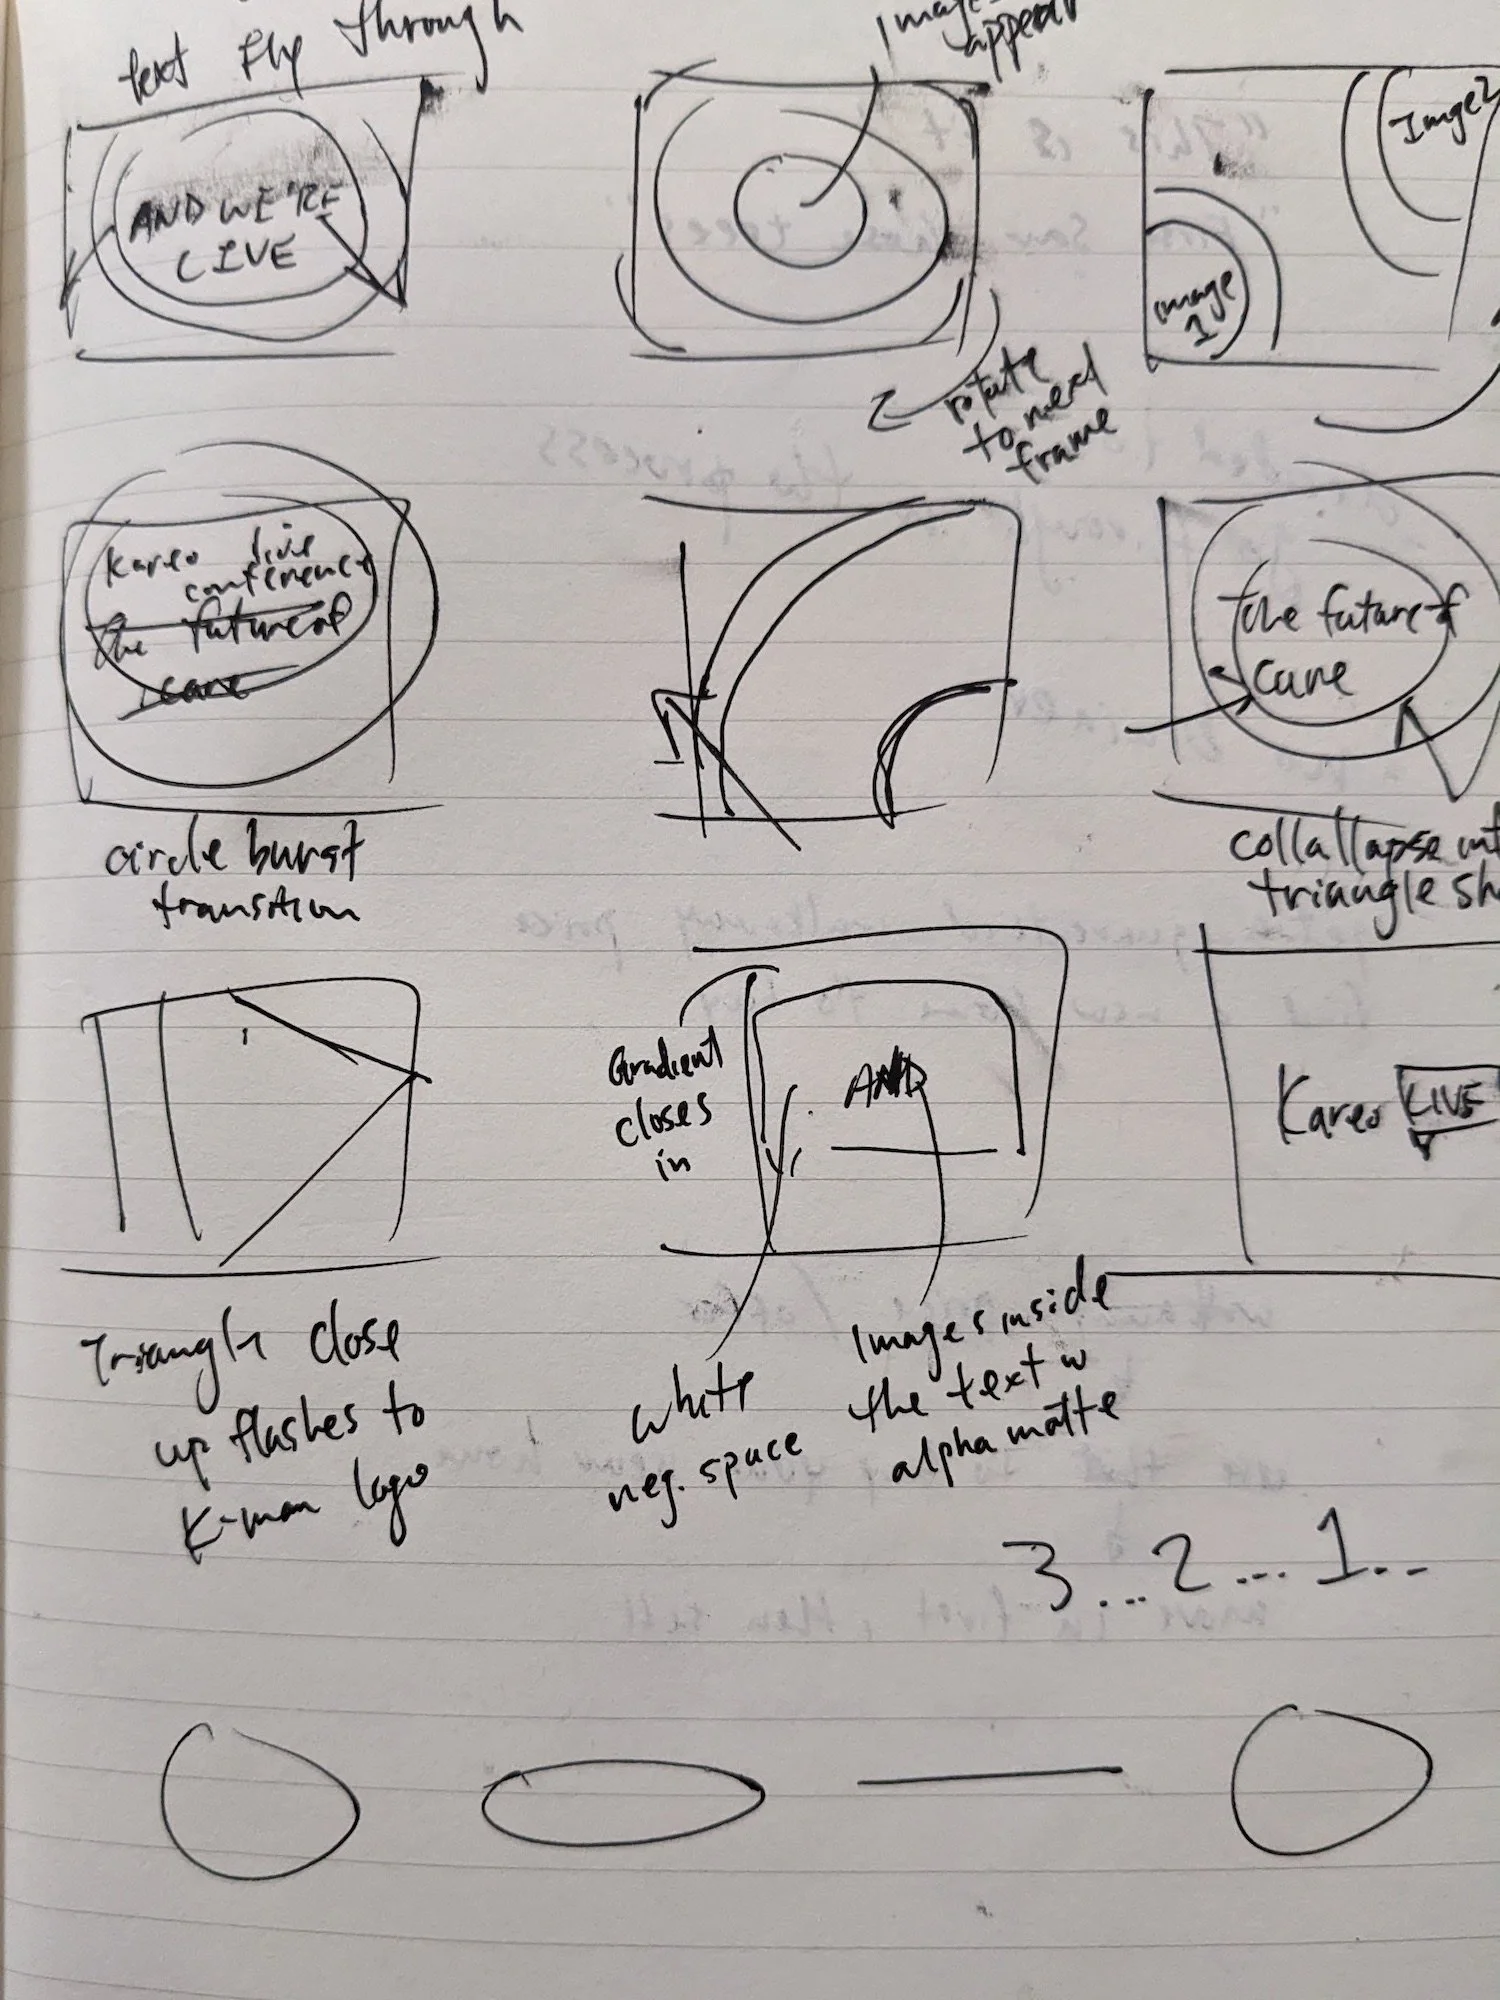 text Fly through
Image
appear
AND WE'RE
LIVE
Image 2
image
1
rotate
to next
frame
Kareo live
conference
the future of
care
circle burst
transition
the future of
care
collallapse int
triangle sh
Triangle close
up flashes to
K-man logo
Gradient
closes
in
AND
white
neg. space
Images inside
the text w
alpha matte
Kareo LIVE
3...2...1..